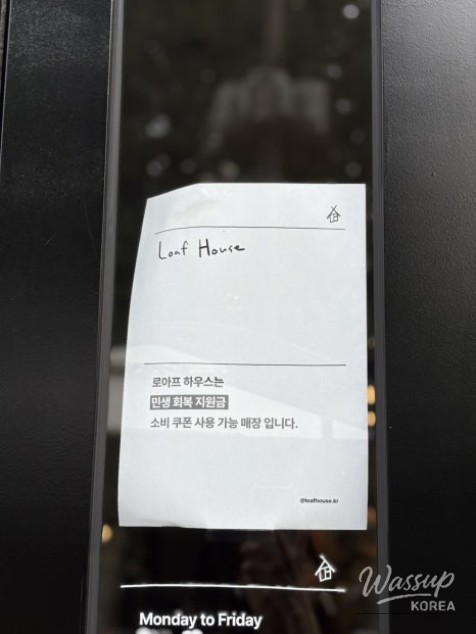 Loaf House
로아프 하우스는
민생 회복 지원금
소비 쿠폰 사용 가능 매장 입니다.
@loafhouse.kr
Monday to Friday
Wassup
KOREA